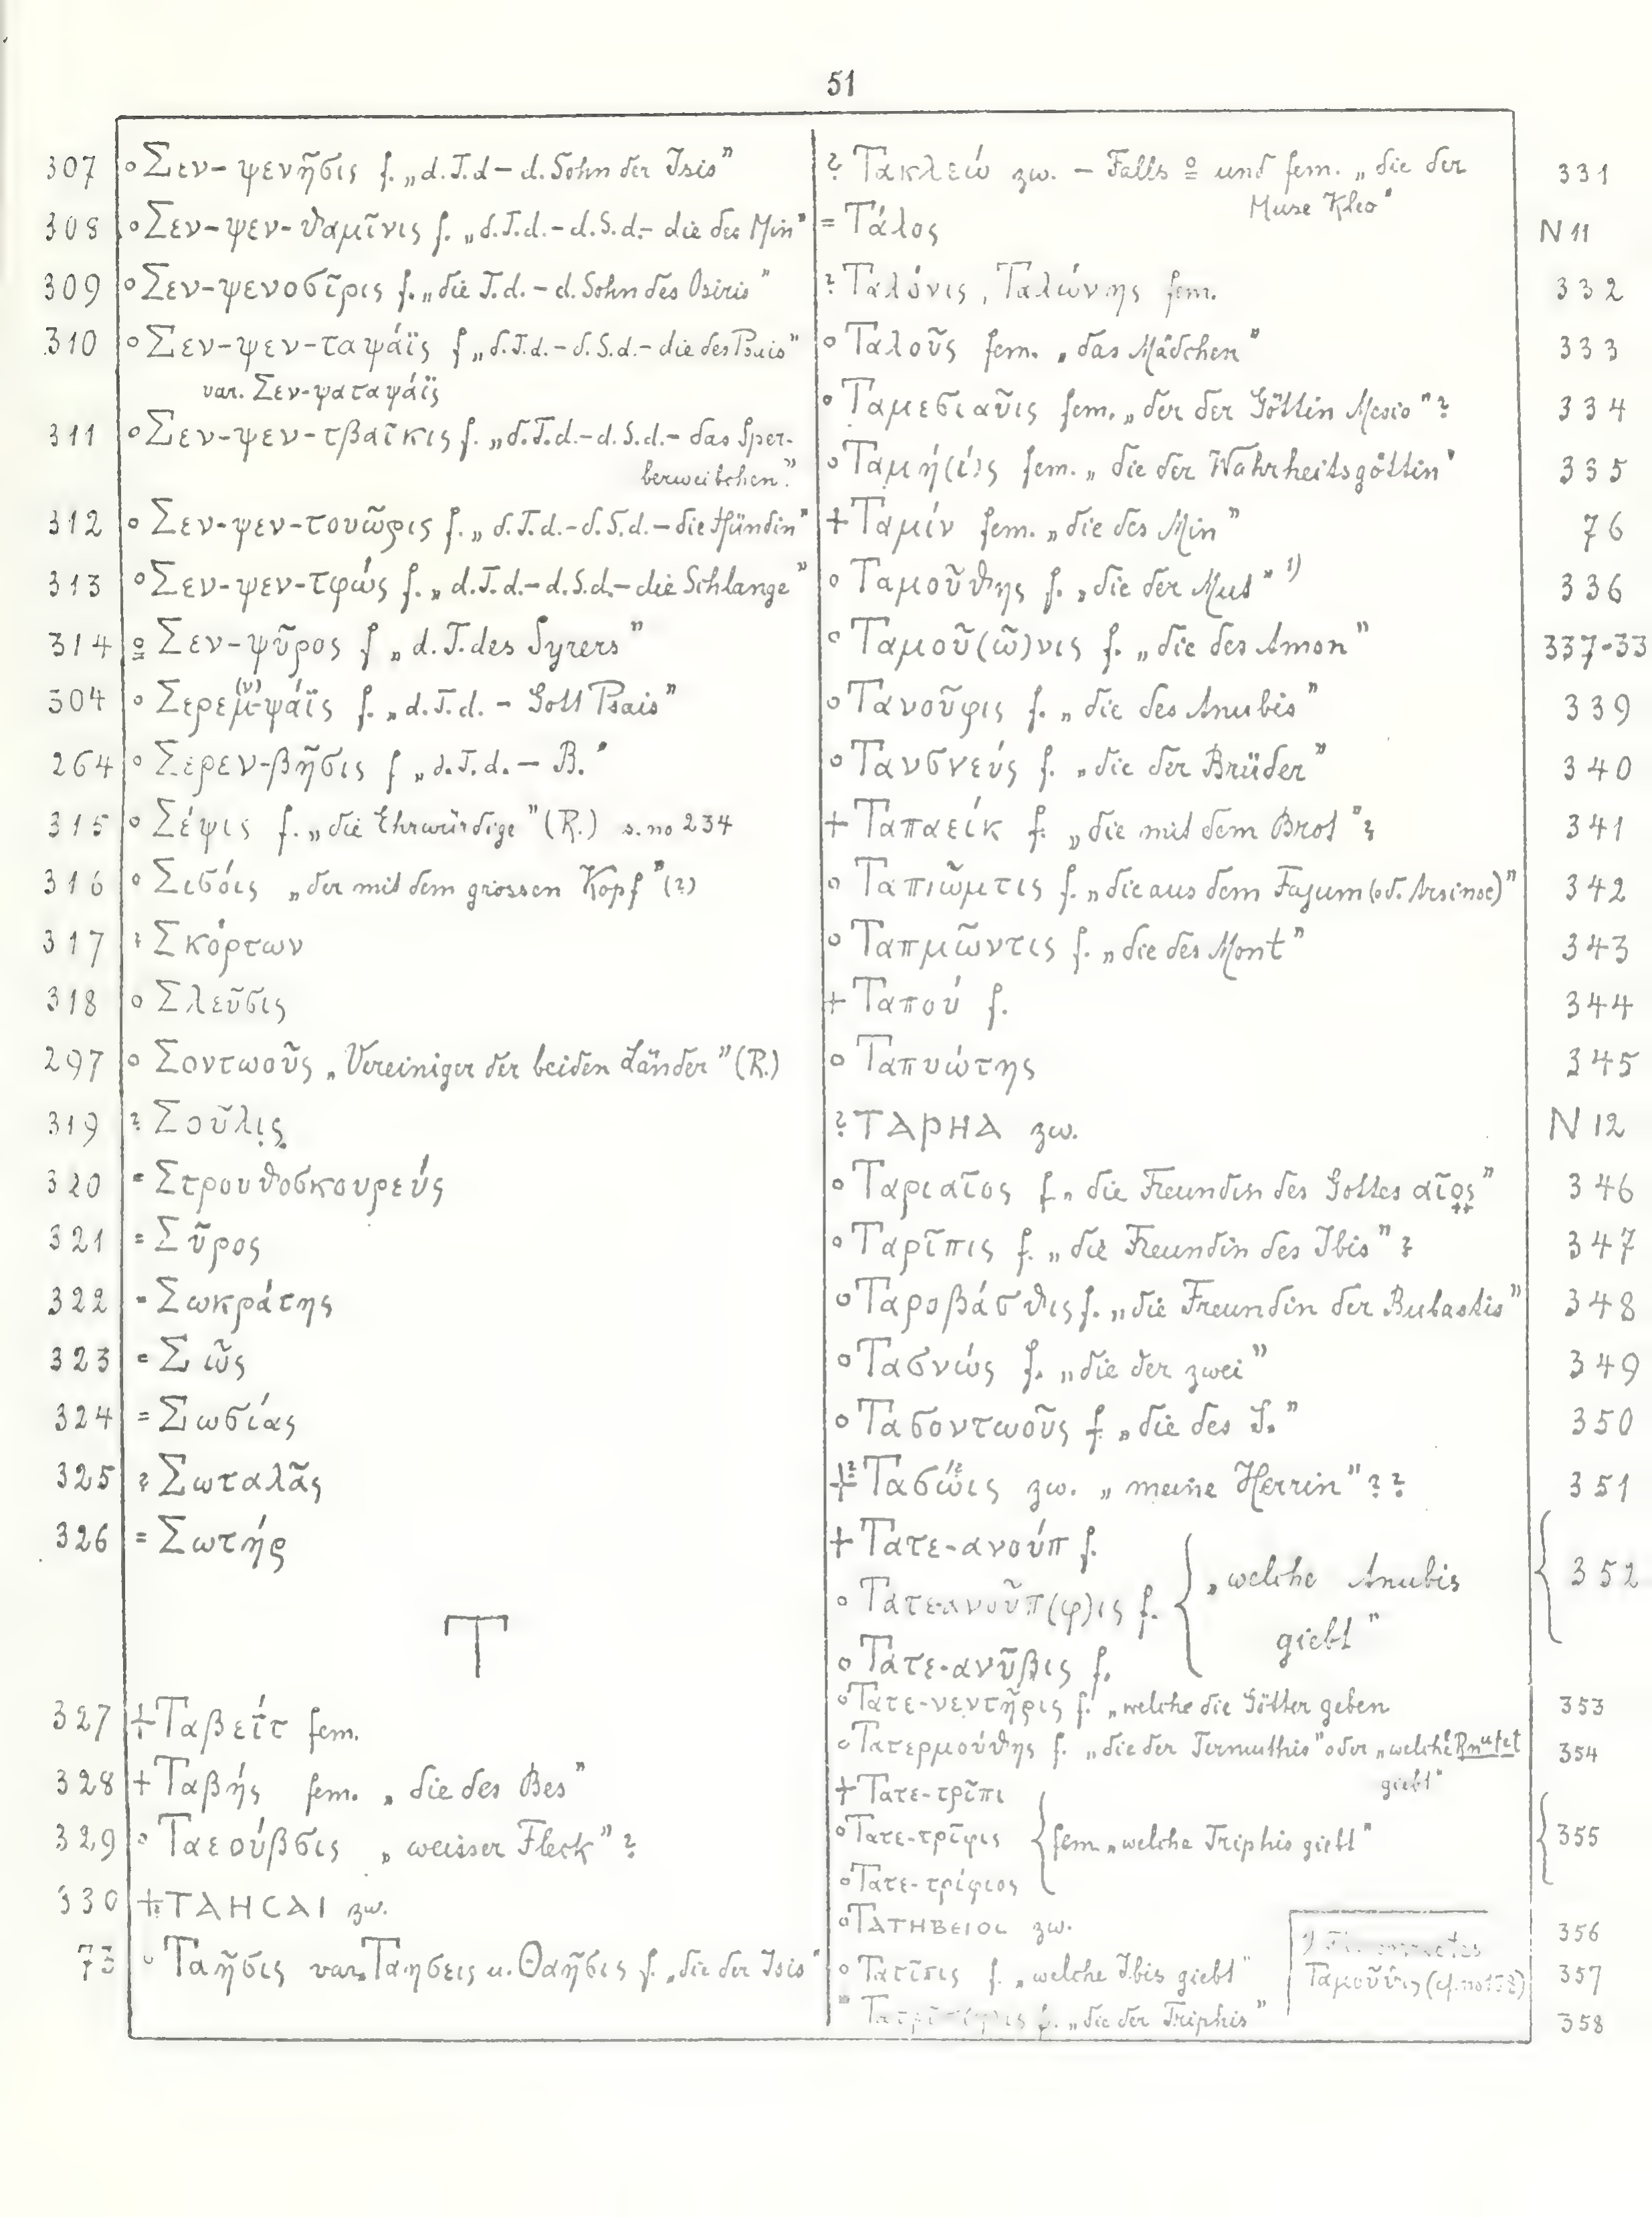 51
307 ο Σεν-ψενῆσις f. „d.T.d – d. Sohn der Isis”
308 ο Σεν-ψεν-θαμῖνις f. „d.T.d. – d.S.d – die des Min”
309 ο Σεν-ψενοσῖρις f. „die T.d. – d. Sohn des Osiris”
310 ο Σεν-ψεν-ταψάϊς f „d.T.d. – d.S.d. – die des Psais”
var. Σεν-ψαταψάϊς
311 ο Σεν-ψεν-τβαῖκις f. „d.T.d. – d.S.d. – das Sper-
berweibchen.”
312 ο Σεν-ψεν-τουῶρις f. „d.T.d. – d.S.d. – die Hündin”
313 ο Σεν-ψεν-τφώς f. „d.T.d. – d.S.d. – die Schlange”
314 ο Σεν-ψῦρος f „d.T. des Syrers”
304 ο Σερεμ(ν)-ψάϊς f. „d.T.d. – Gott Psais”
264 ο Σερεν-βῆσις f „d.T.d. – B.”
315 ο Σέψις f. „die Ehrwürdige” (R.) s. no 234
316 ο Σισόις „der mit dem grossen Kopf” (?)
317 ? Σκόρτων
318 ο Σλεῦσις
297 ο Σοντωοῦς „Vereiniger der beiden Länder” (R.)
319 ? Σοῦλις
320 = Στρουθοσκουρεύς
321 = Σῦρος
322 = Σωκράτης
323 = Σῶς
324 = Σωσίας
325 ? Σωταλᾶς
326 = Σωτήρ
Τ
327 + Ταβεΐτ fem.
328 + Ταβής fem. „die des Bes”
329 ο Ταεούβσις „weisser Fleck” ?
330 +? ΤΑΗCΑΙ zw.
73 ο Ταῆσις var. Ταησεις u. Θαῆσις f. „die der Isis”
? Τακλειώ zw. – Falls ο und fem. „die der 331
Muse Kleo”
= Τάλος N 11
? Ταλόνις, Ταλώνης fem. 332
ο Ταλοῦς fem. „das Mädchen” 333
ο Ταμεσιαῦις fem. „der der Göttin Mesio” ? 334
ο Ταμή(ί)ς fem. „die der Wahrheitsgöttin” 335
+ Ταμίν fem. „die des Min” 76
ο Ταμοῦθης f. „die der Mut” 1) 336
ο Ταμοῦ(ῶ)νις f. „die des Amon” 337-33
ο Τανοῦφις f. „die des Anubis” 339
ο Τανσνεύς f. „die der Brüder” 340
+ Ταπαείκ f. „die mit dem Brot” ? 341
ο Ταπιῶμτις f. „die aus dem Fajum (od. Arsinoe)” 342
ο Ταπμῶντις f. „die des Mont” 343
+ Ταπού f. 344
ο Ταπυώτης 345
? ΤΑΡΗΑ zw. N 12
ο Ταριαῖος f. „die Freundin des Gottes αῖος” 346
ο Ταρῖπις f. „die Freundin des Ibis” ? 347
ο Ταροβάσθις f. „die Freundin der Bubastis” 348
ο Τασνώς f. „die der zwei” 349
ο Τασοντωοῦς f. „die des S.” 350
+? Τασώις zw. „meine Herrin” ?? 351
+ Τατε-ανούπ f.
ο Τατε-ανοῦπ(φ)ις f. „welche Anubis 352
giebt”
ο Τατε-ανῦβις f.
ο Τατε-νεντῆρις f. „welche die Götter geben 353
ο Τατερμούθης f. „die der Termuthis” oder „welche Rnutet 354
giebt”
+ Τατε-τρῖπι
ο Τατε-τρῖφις fem. „welche Triphis giebt” 355
ο Τατε-τρίφιος
ο ΤΑΤΗΒΕΙΟC zw. 356
ο Τατῖπις f. „welche Ibis giebt” 357
f. „die der Triphis” 358
1)
Ταμοῦθις (cf. no 152)